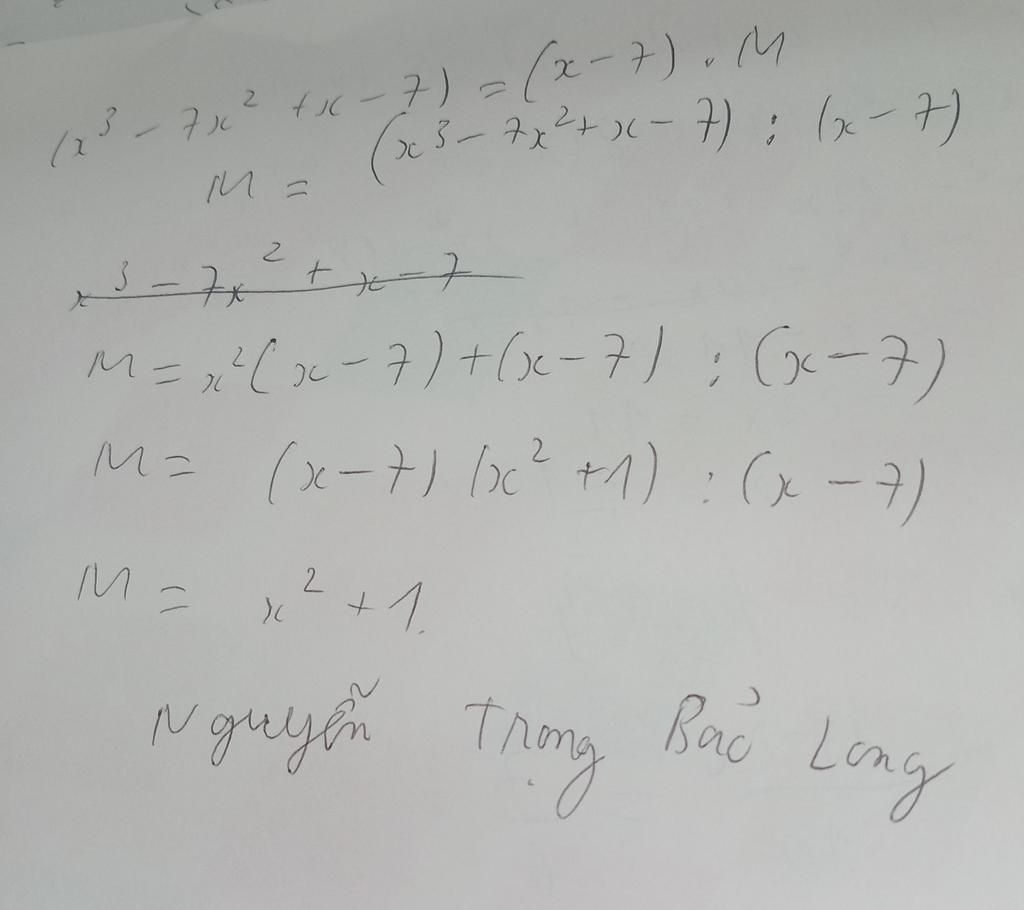 (x³ - 7x² + x - 7) = (x - 7) . M
M = (x³ - 7x² + x - 7) : (x - 7)
x³ - 7x² + x - 7
M = x²(x - 7) + (x - 7) : (x - 7)
M = (x - 7) (x² + 1) : (x - 7)
M = x² + 1.
Nguyễn Trọng Bảo Long